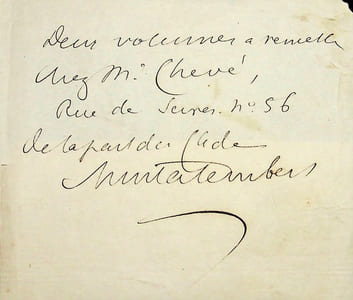 Deux volumes a remettre
chez Mr. Chevé,
Rue de Sevres. No. 56
de la part du Cte de
Montalembert